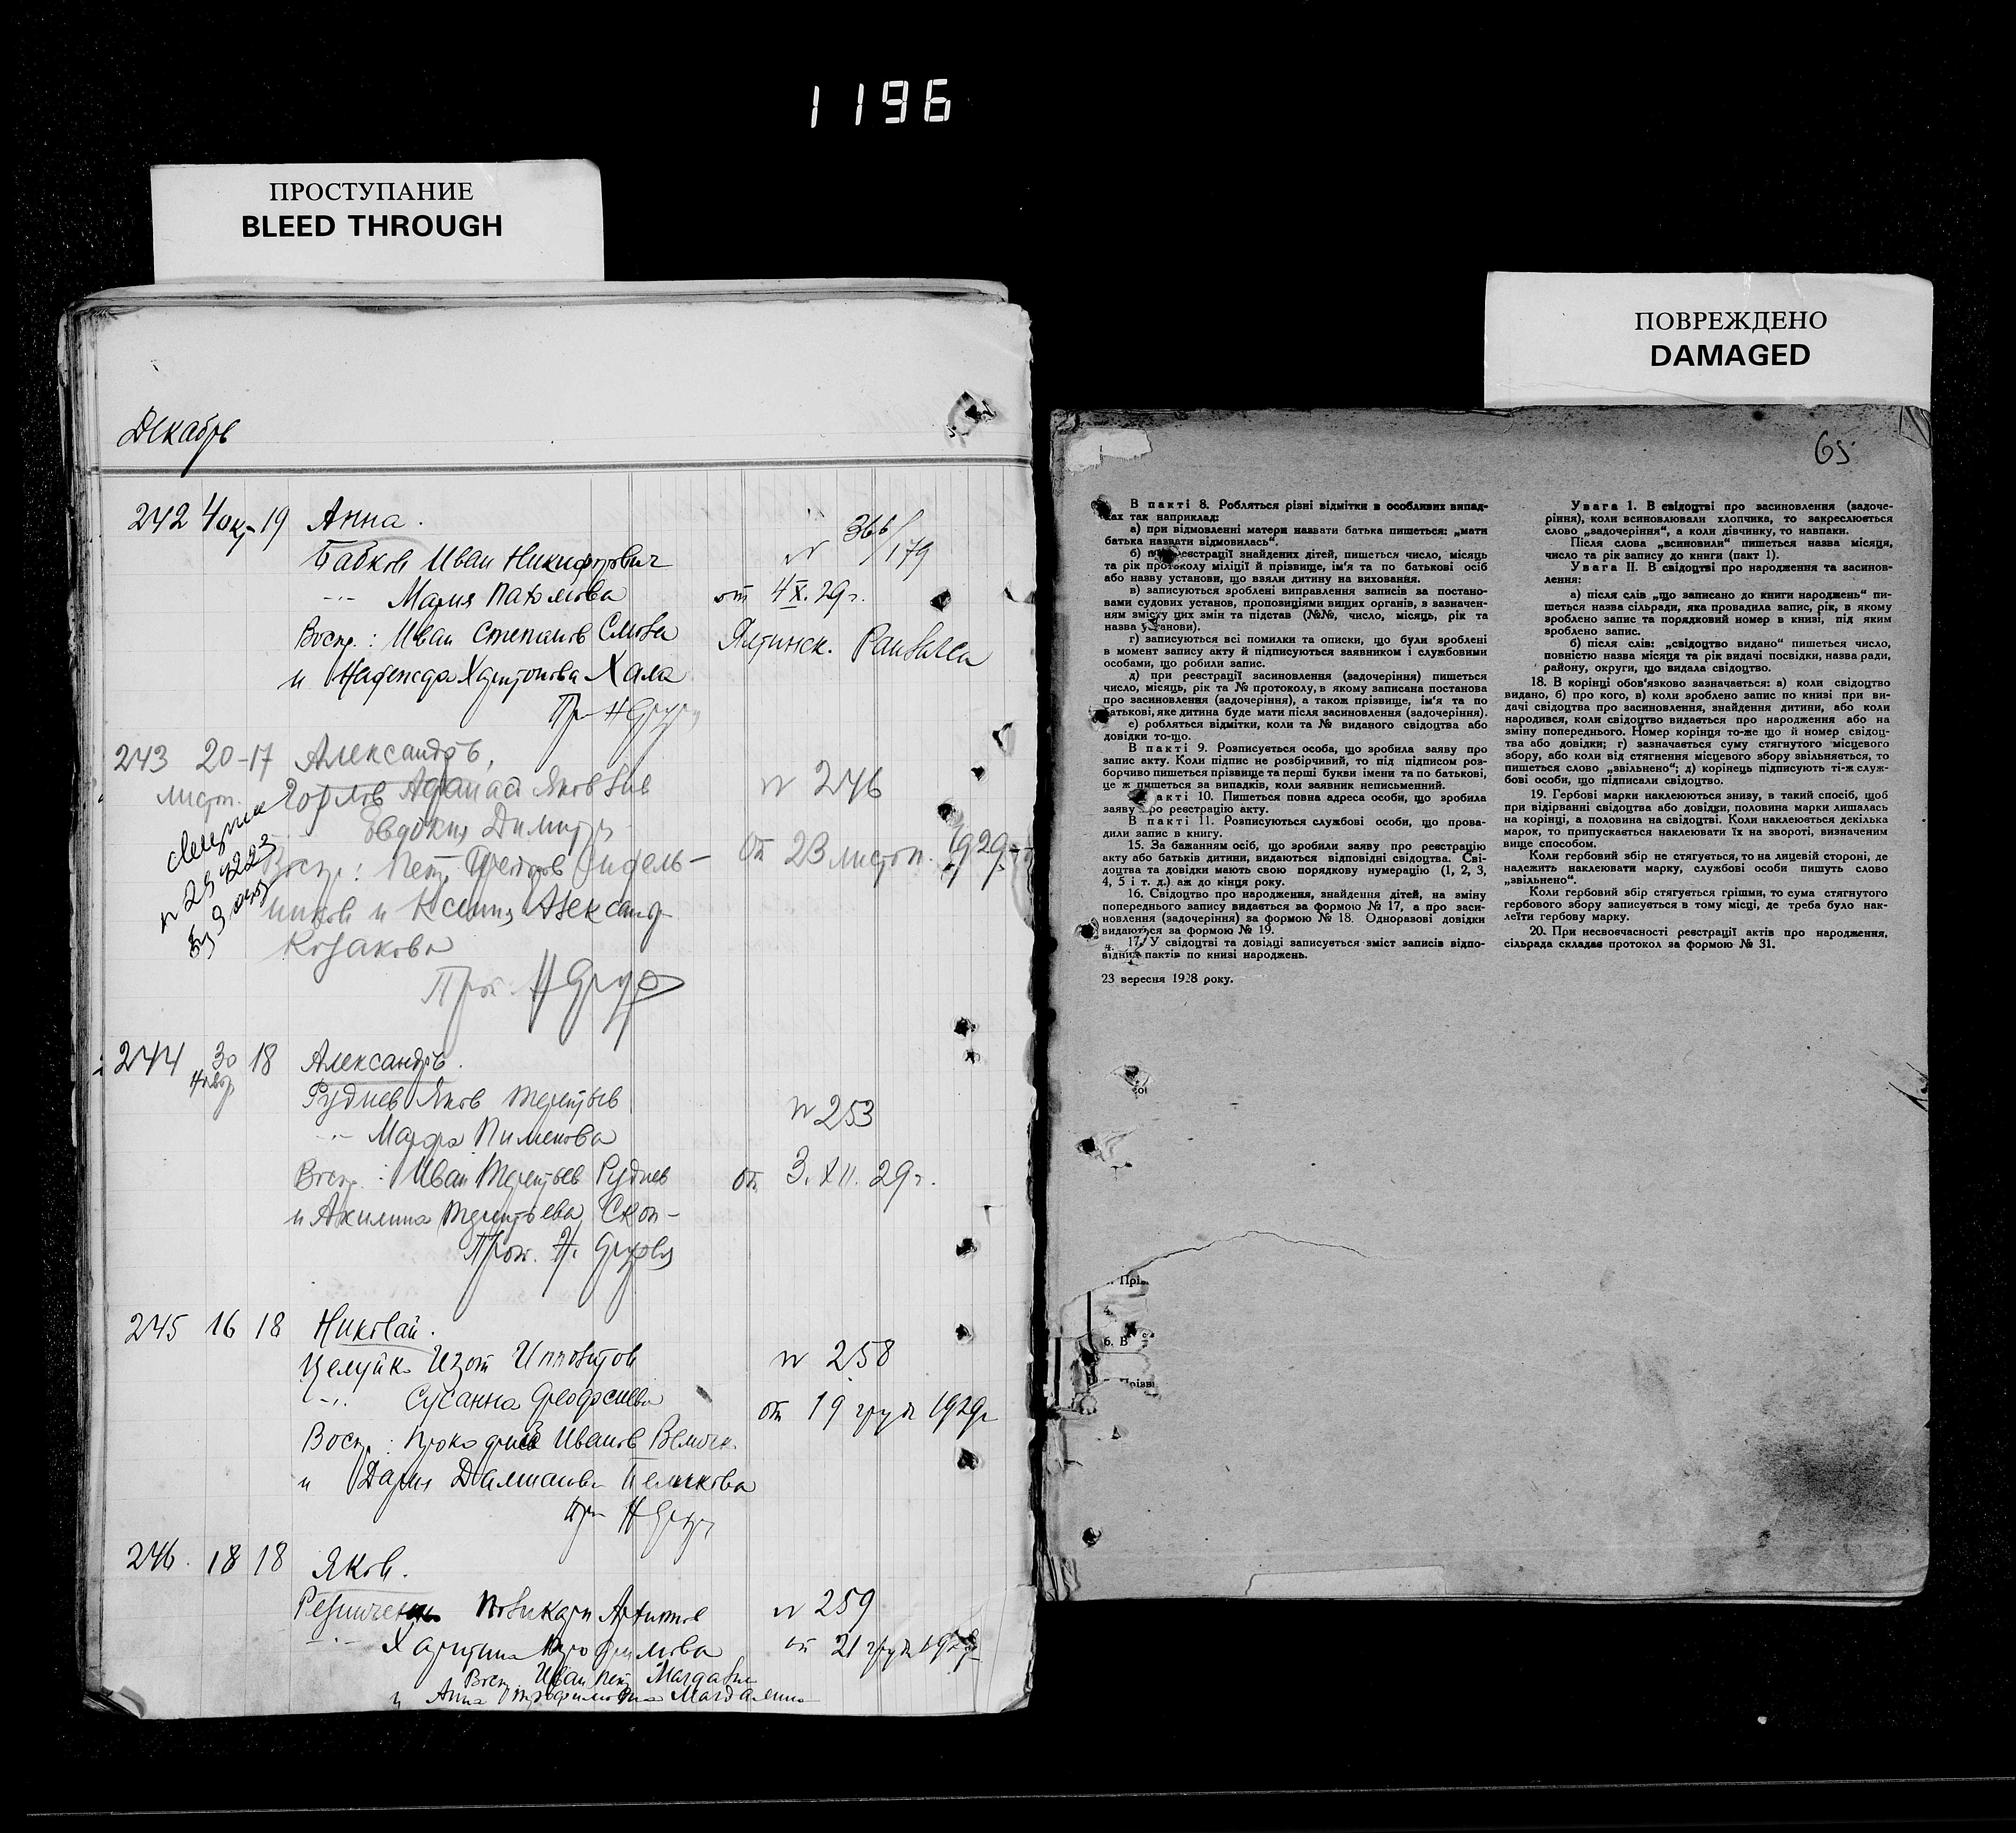 1196
ПРОСТУПАНИЕ
BLEED THROUGH
Декабрь
242 4 окт. 19 Анна.
Бабков Иван Никифорович
Мария Павлова
Воспр.: Иван Степанов
и Надежда Харитонова Хала
N 366/179
от 4 X. 29 г.
243 20-17 Александръ,
листоп. Афанас Яковлев
Евдокия Димитр
Воспр:
и Ксения Александ
Козакова
N 246
от 23 листоп. 1929
244 30 нояб. 18 Александръ.
Руднев Яков Терентьев
Марфа Пименова
Воспр.: Иван Терентьев Руднев
и Акилина Терентьева
Прот. Н.
N 253
от 3. XII. 29 г.
245 16 18 Николай.
Целуйко Изот Ипполитов
Сусанна
Воспр.: Прокофий Иванов
и Дария
N 258
от 19 груд 1929 г
246. 18 18 Яков.
Поликарп
Харитина Трофимова
Воспр. Иван Петр
и Анна Трофимовна
N 259
от 21 груд 1929
ПОВРЕЖДЕНО
DAMAGED
65
В пакті 8. Робляться різні відмітки в особливих випад-
ках так наприклад:
а) при відмовленні матери назвати батька пишеться: „мати
батька назвати відмовилась“.
б) при реєстрації знайдених дітей, пишеться число, місяць
та рік протоколу міліції й прізвище, ім'я та по батькові осіб
або назву установи, що взяли дитину на виховання.
в) записуються зроблені виправлення записів за постано-
вами судових установ, пропозиціями вищих органів, в зазначен-
ням змісту цих змін та підстав (№№, число, місяць, рік та
назва установи).
г) записуються всі помилки та описки, що були зроблені
в момент запису акту й підписуються заявником і службовими
особами, що робили запис.
д) при реєстрації засиновлення (задочеріння) пишеться
число, місяць, рік та № протоколу, в якому записана постанова
про засиновлення (задочеріння), а також прізвище, ім'я та по
батькові, яке дитина буде мати після засиновлення (задочеріння).
е) робляться відмітки, коли та № виданого свідоцтва або
довідки то-що.
В пакті 9. Розписується особа, що зробила заяву про
запис акту. Коли підпис не розбірчивий, то під підписом роз-
борчиво пишеться прізвище та перші букви імени та по батькові,
це ж пишеться за випадків, коли заявник неписьменний.
В пакті 10. Пишеться повна адреса особи, що зробила
заяву про реєстрацію акту.
В пакті 11. Розписуються службові особи, що прова-
дили запис в книгу.
15. За бажанням осіб, що зробили заяву про реєстрацію
акту або батьків дитини, видаються відповідні свідоцтва. Сві-
доцтва та довідки мають свою порядкову нумерацію (1, 2, 3,
4, 5 і т. д.) аж до кінця року.
16. Свідоцтво про народження, знайдення дітей, на зміну
попереднього запису видається за формою № 17, а про заси-
новлення (задочеріння) за формою № 18. Одноразові довідки
видаються за формою № 19.
17. У свідоцтві та довідці записується зміст записів відпо-
відних пактів по книзі народжень.
23 вересня 1928 року.
Увага I. В свідоцтві про засиновлення (задоче-
ріння), коли всиновлювали хлопчика, то закреслюється
слово „задочеріння“, а коли дівчинку, то навпаки.
Після слова „всиновили“ пишеться назва місяця,
число та рік запису до книги (пакт 1).
Увага II. В свідоцтві про народження та засинов-
лення:
а) після слів „що записано до книги народжень“ пи-
шеться назва сільради, яка провадила запис, рік, в якому
зроблено запис та порядковий номер в книзі, під яким
зроблено запис.
б) після слів: „свідоцтво видано“ пишеться число,
повністю назва місяця та рік видачі посвідки, назва ради,
району, округи, що видала свідоцтво.
18. В корінці обов'язково зазначається: а) коли свідоцтво
видано, б) про кого, в) коли зроблено запис по книзі при ви-
дачі свідоцтва про засиновлення, знайдення дитини, або коли
народився, коли свідоцтво видається про народження або на
зміну попереднього. Номер корінця то-же що й номер свідоц-
тва або довідки; г) зазначається суму стягнутого місцевого
збору, або коли від стягнення місцевого збору звільняється, то
пишеться слово „звільнено“; д) корінець підписують ті-ж служ-
бові особи, що підписали свідоцтво.
19. Гербові марки наклеюються знизу, в такий спосіб, щоб
при відірванні свідоцтва або довідки, половина марки лишалась
на корінці, а половина на свідоцтві. Коли наклеюється декілька
марок, то припускається наклеювати їх на звороті, визначеним
вище способом.
Коли гербовий збір не стягується, то на лицевій стороні, де
належить наклеювати марку, службові особи пишуть слово
„звільнено“.
Коли гербовий збір стягується грішми, то сума стягнутого
гербового збору записується в тому місці, де треба було нак-
леїти гербову марку.
20. При несвоєчасності реєстрації актів про народження,
сільрада складає протокол за формою № 31.
4.
6. В